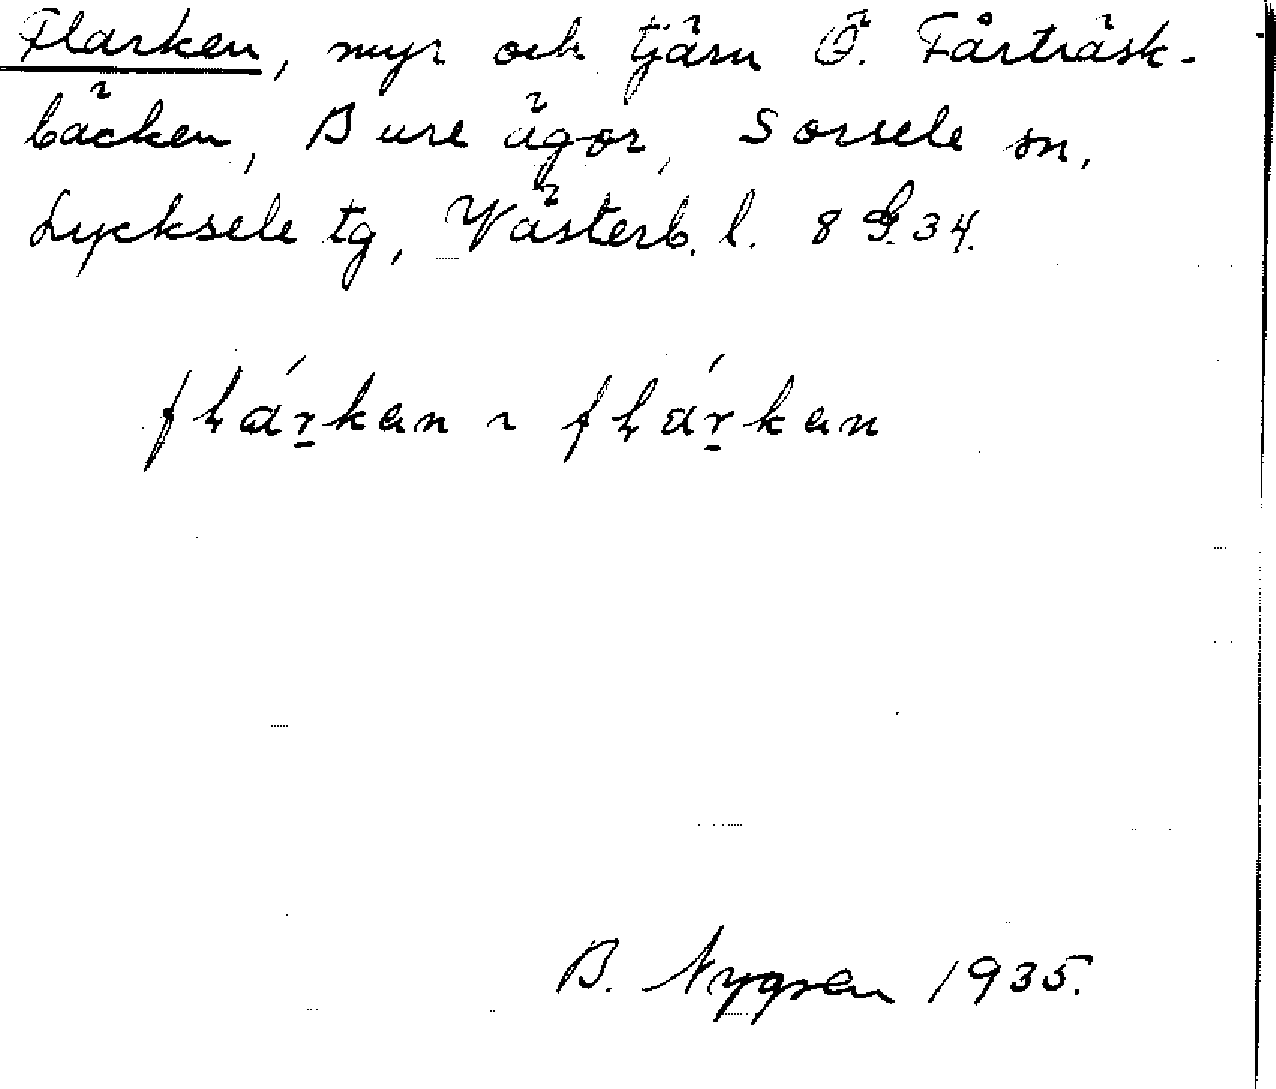 Flarken, myr och tjärn Ö. Fårträsk-
bäcken, Bure ägor, Sorsele sn,
Lycksele tg, Västerb. l. 8 G. 34.
flárkan ~ flárkan
B. Nygren 1935.